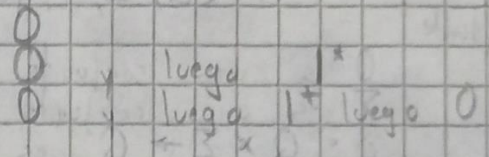 0
0 y luego 1*
0 y luego 1+ luego 0